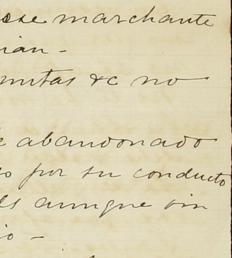 ose marchante
ian -
mitas &c no
abandonado
o por su conducto
ls aunque sin
io -